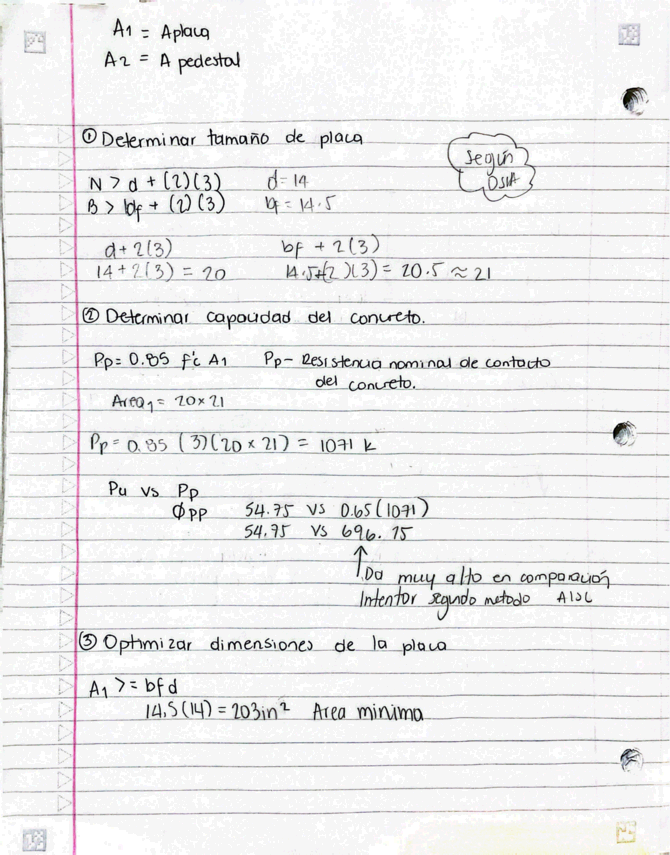 A1 = Aplaca
A2 = A pedestal
① Determinar tamaño de placa
Según
DSIA
N > d + (2)(3) d=14
B > bf + (2)(3) bf = 14.5
d + 2(3) bf + 2(3)
14 + 2(3) = 20 14.5+(2)(3) = 20.5 ≈ 21
② Determinar capacidad del concreto.
Pp= 0.85 f'c A1 Pp - Resistencia nominal de contacto
del concreto.
Area1 = 20x21
Pp = 0.85 (3)(20 x 21) = 1071 k
Pu vs Pp
ØPP 54.75 vs 0.65(1071)
54.75 vs 696.15
↑
Da muy alto en comparación
Intentar segundo metodo AISC
③ Optimizar dimensiones de la placa
A1 >= bfd
14.5(14) = 203in² Area minima